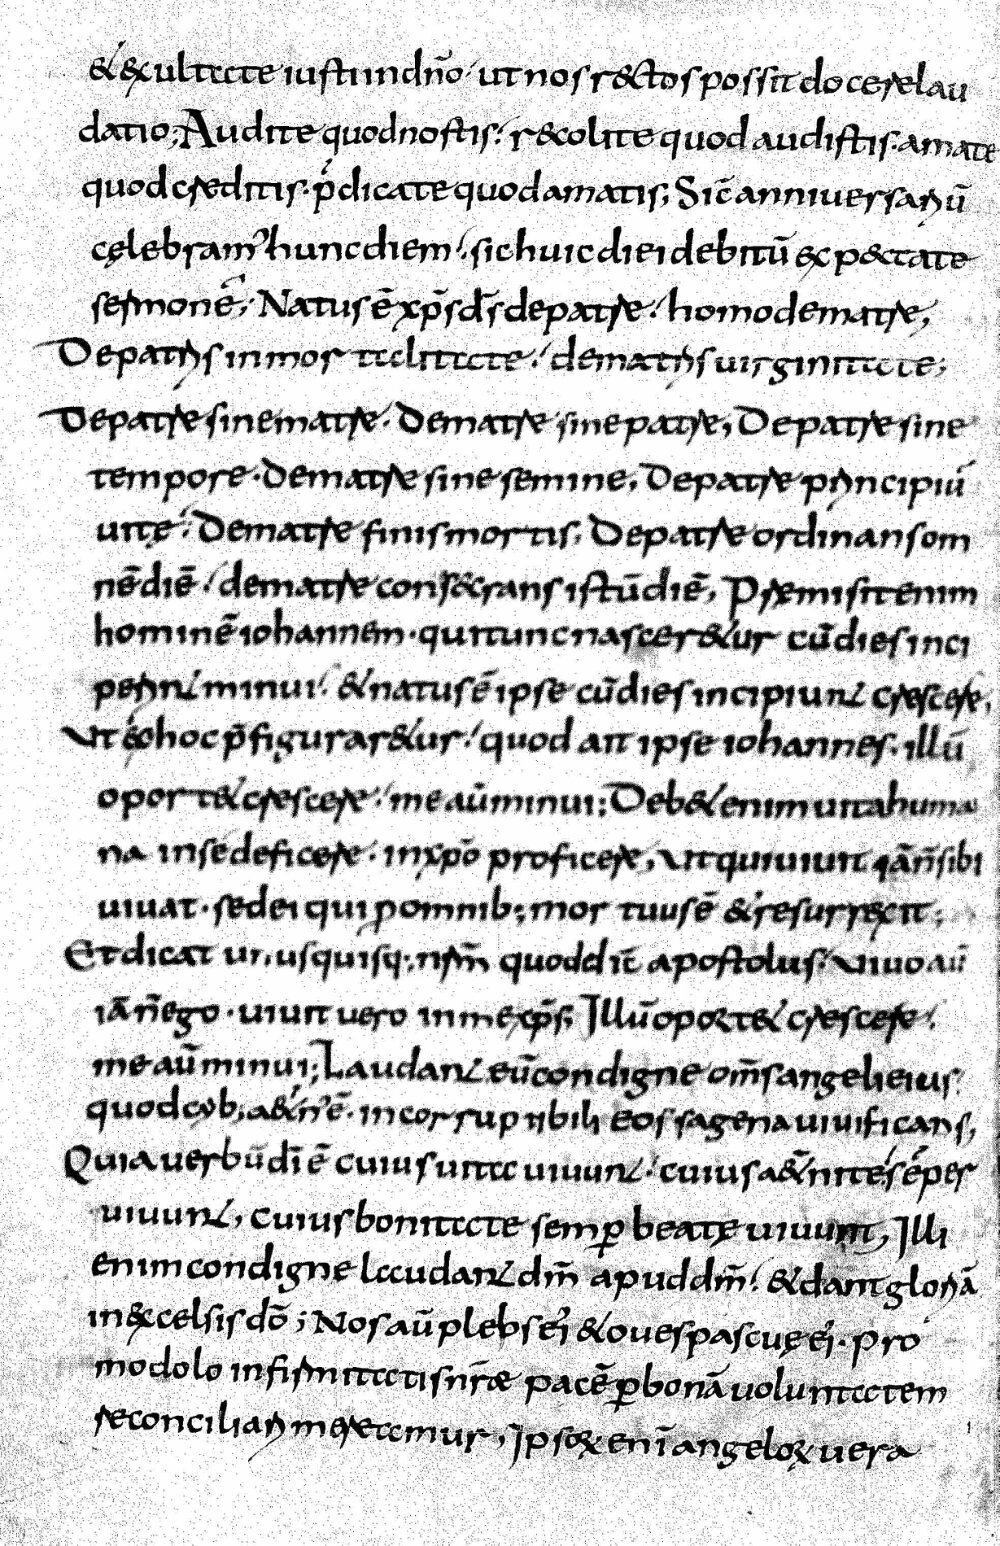 & exultate iusti in dn̄o. ut nos r&ctos possit docere lau
datio; Audite quod nostis. r&colite quod audistis. amate
quod creditis. p̄dicate quod amatis; Sic̄ anniuersariū
cęlebram' hunc diem. sic huic diei debitū exp&ctate
sermonē; Natus ē xp̄s d̄s de patre. homo de matre;
De patris inmortalitate. de matris uirginitate;
De patre sine matre. De matre sine patre; De patre sine
tempore. De matre sine semine; De patre principiū
uitę. De matre finis mortis; De patre ordinans om
nē diē. de matre cons&crans istū diē; Premisit enim
hominē iohannem. qui tunc nascer&ur cū dies inci
perent minui. & natus ē ipse cū dies incipiunt crescere;
Ut ex hoc p̄figurar&ur. quod ait ipse iohannes. illū
oport& crescere. me aū minui; Deb& enim uita huma
na in se deficere. in xp̄o proficere; Ut qui uiuit iā n̄ sibi
uiuat. sed ei qui p omnib; mortuus ē & resurrexit;
Et dicat unusquisq; nr̄m quod dic̄ apostolus. Uiuo aū
iā n̄ ego. uiuit uero in me xp̄s; Illū oport& crescere.
me aū minui; Laudant eū condigne om̄s angeli eius.
quod cyb; a&n' ē. incorruptibili eos sagena uiuificans;
Quia uerbū dī ē cuius uita uiuunt. cuius a&nitę sēper
uiuunt; cuius bonitate semp beatę uiuunt; Illi
enim condigne laudant dm̄ apud dm̄. & dant gloriā
in excelsis dō; Nos aū plebs ei' & oues pascuę ei'. pro
modolo infirmitatis nr̄æ pacē p bonā voluntatem
reconciliari mereamur; Ipsoꝝ enī angeloꝝ uera